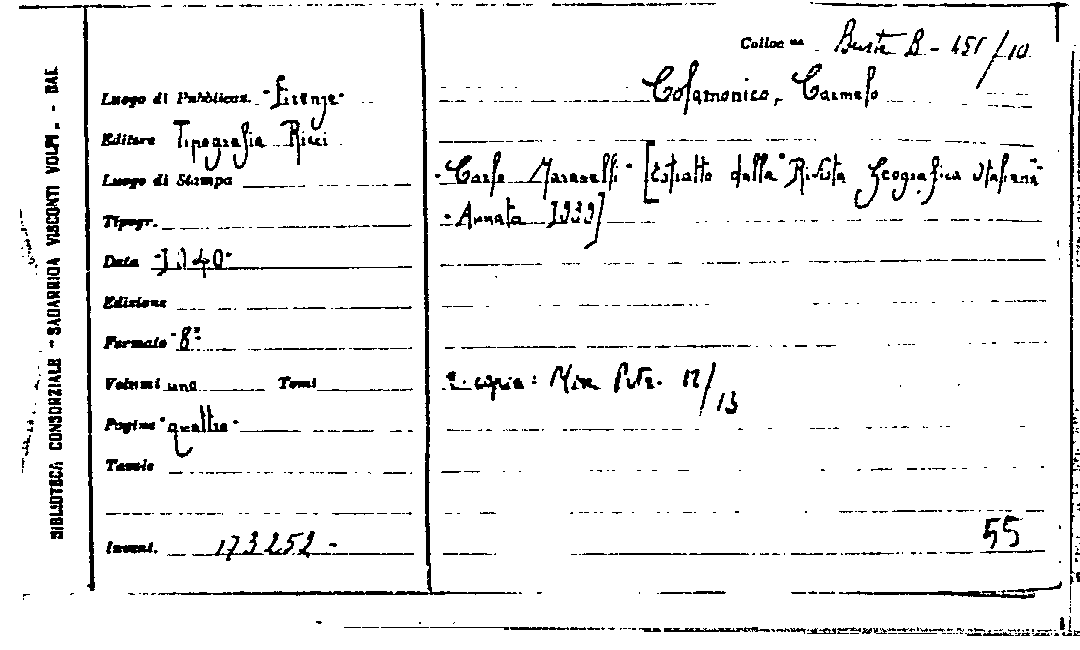 BIBLIOTECA CONSORZIALE "SAGARRIGA VISCONTI VOLPI" - BARI
Colloc.ne Busta B - 451/10
Colamonico, Carmelo
Luogo di Pubblicaz. - Firenze -
Editore Tipografia Ricci
Luogo di Stampa
- Carlo Maranelli - [Estratto dalla "Rivista Geografica Italiana"
Tipogr.
- Annata 1939]
Data - 1940 -
Edizione
Formato - 8° -
Volumi uno Tomi
2ª copia: Misc. 12/13
Pagine - quattro -
Tavole
Invent. 173252 -
55